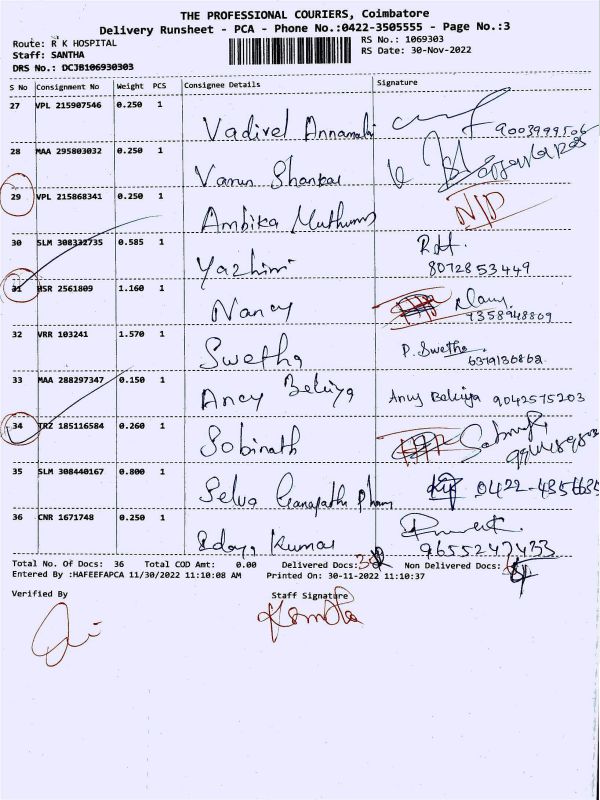 THE PROFESSIONAL COURIERS, Coimbatore
Delivery Runsheet - PCA - Phone No.:0422-3505555 - Page No.:3
Route: R K HOSPITAL
RS No.: 1069303
Staff: SANTHA
RS Date: 30-Nov-2022
DRS No.: DCJB106930303
S No Consignment No Weight PCS Consignee Details Signature
27 VPL 215907546 0.250 1 Vadivel Annamalai 9003999506
28 MAA 295803032 0.250 1 Varun Shankar
29 VPL 215868341 0.250 1 Ambika Muthums N/P
30 SLM 308332735 0.585 1 Yazhini 8072853449
31 HSR 2561809 1.160 1 Nancy 7358948809
32 VRR 103241 1.570 1 Swetha P. Swetha 6379130868
33 MAA 288297347 0.150 1 Ancy Beluya Ancy Beluya 9042575203
34 TRZ 185116584 0.260 1 Sobinath
35 SLM 308440167 0.800 1 Selva Ganapathi Pham 0422-4356685
36 CNR 1671748 0.250 1 Udaya Kumar 9655247433
Total No. Of Docs: 36 Total COD Amt: 0.00 Delivered Docs: Non Delivered Docs:
Entered By :HAFEEFAPCA 11/30/2022 11:10:08 AM Printed On: 30-11-2022 11:10:37
Verified By Staff Signature